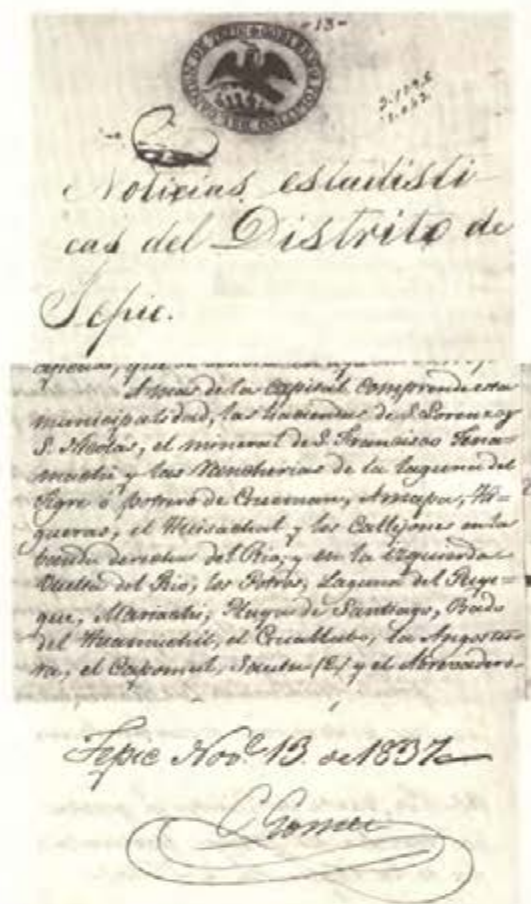 -13-
GOBIERNO POLITICO DEL CANTON DE TEPIC
Noticias estadisti-
cas del Distrito de
Tepic.
A mas de la Capital comprende esta
municipalidad, las haciendas de S. Lorenzo y
S. Nicolas, el mineral de S. Francisco Tena-
machi y las Rancherias de la laguna del
Tigre ó potrero de Cueman, Amapa, Hi-
gueras, el Huisachal y los Callejones en la
banda derecha del Rio, y en la izquierda
Vuelta del Rio, los Potros, Laguna del
Mariachi, Playa de Santiago, Bado
del Huamuchil, el la Angostu-
ra, el Capomal, Santa y el Abrevadero
Tepic Nov.e 13 de 1837
Gomez